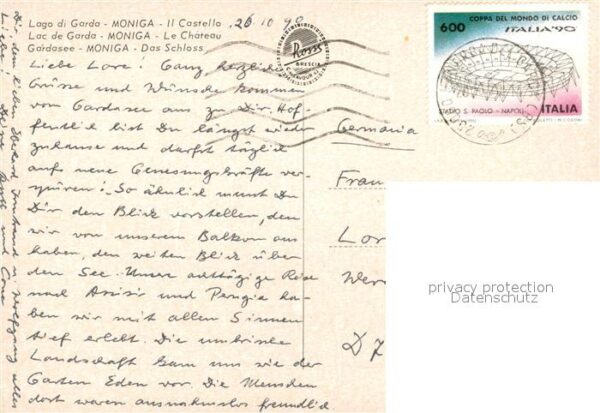 Lago di Garda - MONIGA - Il Castello
Lac de Garda - MONIGA - Le Château
Gardasee - MONIGA - Das Schloss
26 10 90
Ross
BRESCIA
600
COPPA DEL MONDO DI CALCIO
ITALIA '90
STADIO S. PAOLO - NAPOLI
ITALIA
Liebe Lore! Ganz herzliche
Grüsse und Wünsche kommen
vom Gardasee aus zu Dir. Hof-
fentlich bist Du längst wieder
zuhause und darfst täglich
aufs neue Genesungskräfte ver-
spüren! So ähnlich musst Du
Dir den Blick vorstellen, den
wir von unserem Balkon aus
haben, den weiten Blick über
den See. Unsere achttägige Reise
nach Assisi und Perugia ha-
ben wir mit allen Sinnen
tief erlebt. Die umbrische
Landschaft kam uns wie der
Garten Eden vor. Die Menschen
dort waren ausnahmslos freundlich
Germania
Fran
Lor
Wer
D 7
Dir, dem lieben Eberhard, und Wolfgang alles
Liebe! Deine Ruth und
privacy protection
Datenschutz